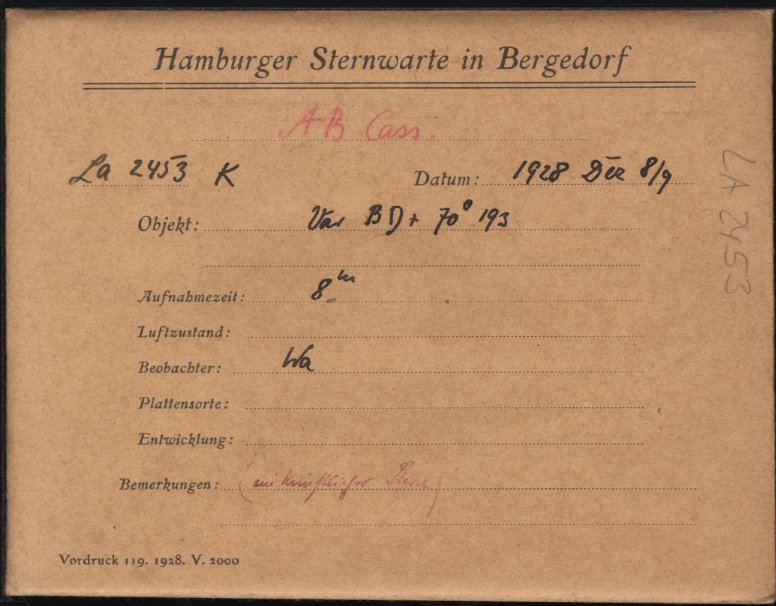 Hamburger Sternwarte in Bergedorf
AB Cass.
La 2453 K Datum: 1928 Dez 8/9
Objekt: Var BD + 70° 193
Aufnahmezeit: 8m
Luftzustand:
Beobachter: Wa
Plattensorte:
Entwicklung:
Bemerkungen:
Vordruck 119. 1928. V. 2000
LA 2453